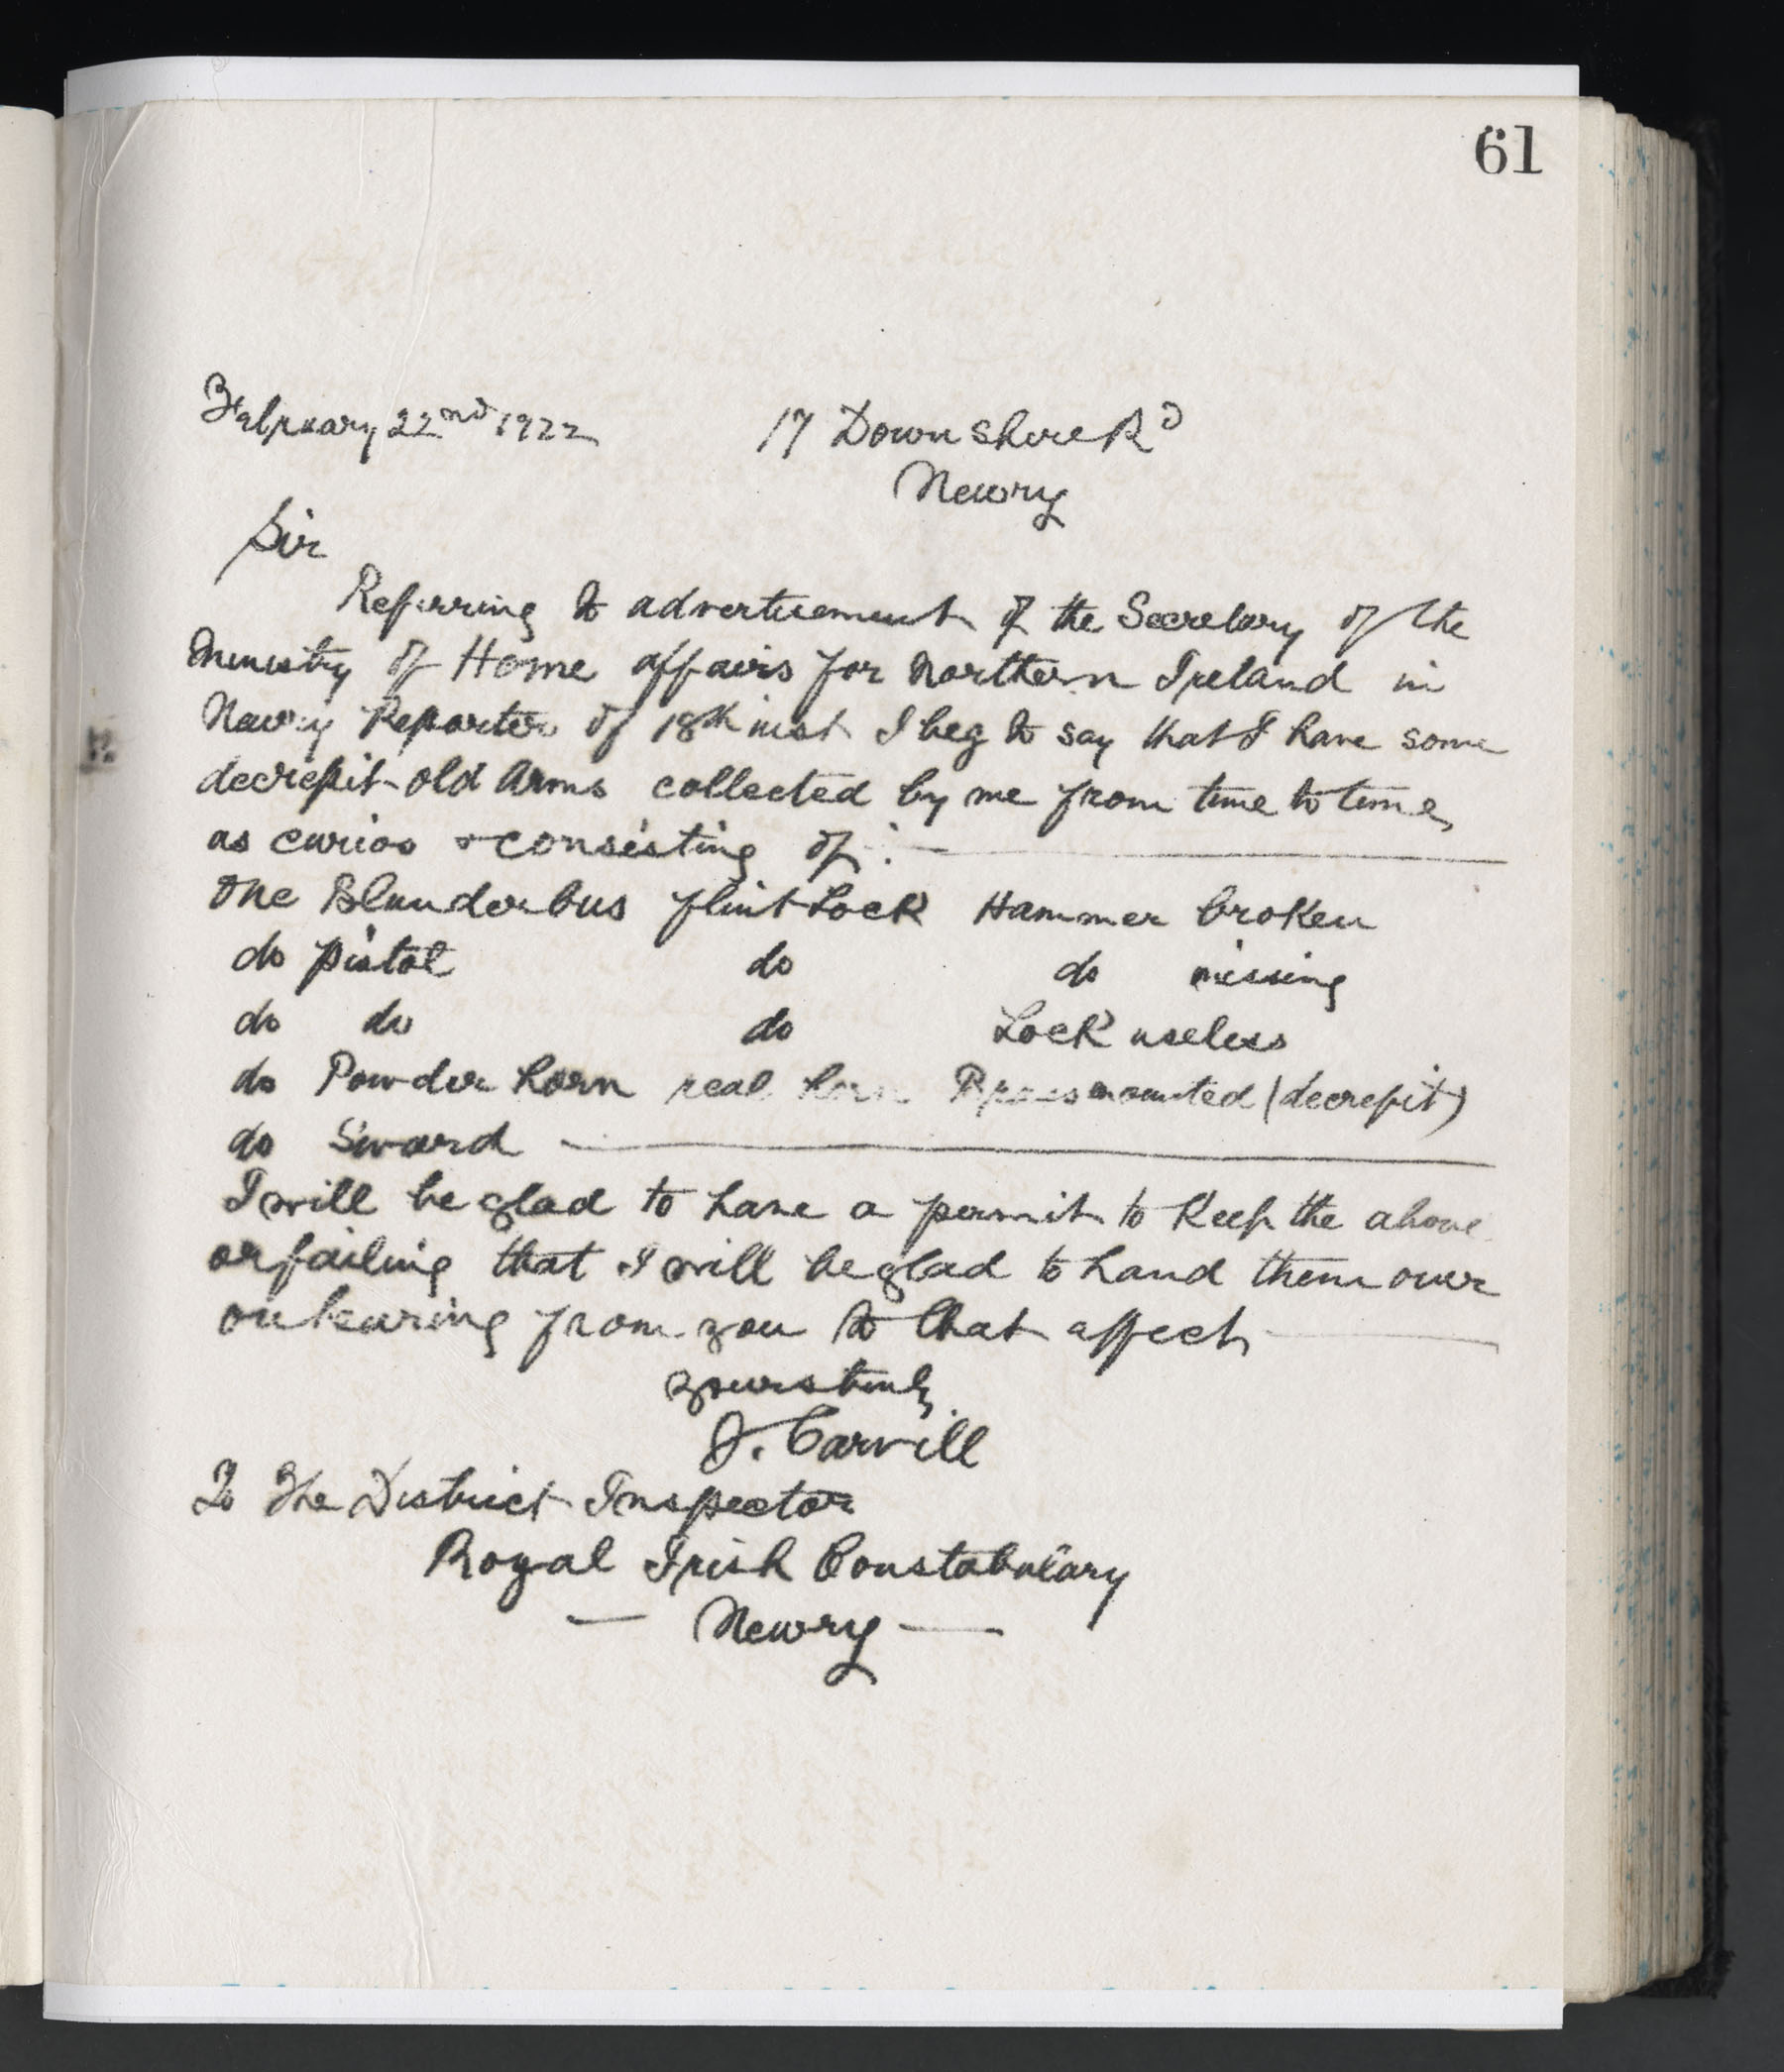 61
February 22nd 1922 17 Downshire Rd
Newry
Sir
Referring to advertisement of the Secretary of the
Ministry of Home affairs for Northern Ireland in
Newry Reporter of 18th inst I beg to say that I have some
decrepit old Arms collected by me from time to time,
as curios & consisting of :—
One Blunderbus flint Lock Hammer broken
do pistol do do missing
do do do Lock useless
do Powder horn real horn Brass mounted (decrepit)
do Sword —
I will be glad to have a permit to keep the above
or failing that I will be glad to hand them over
on hearing from you to that affect
yours truly
J. Carvill
To The District Inspector
Royal Irish Constabulary
— Newry —